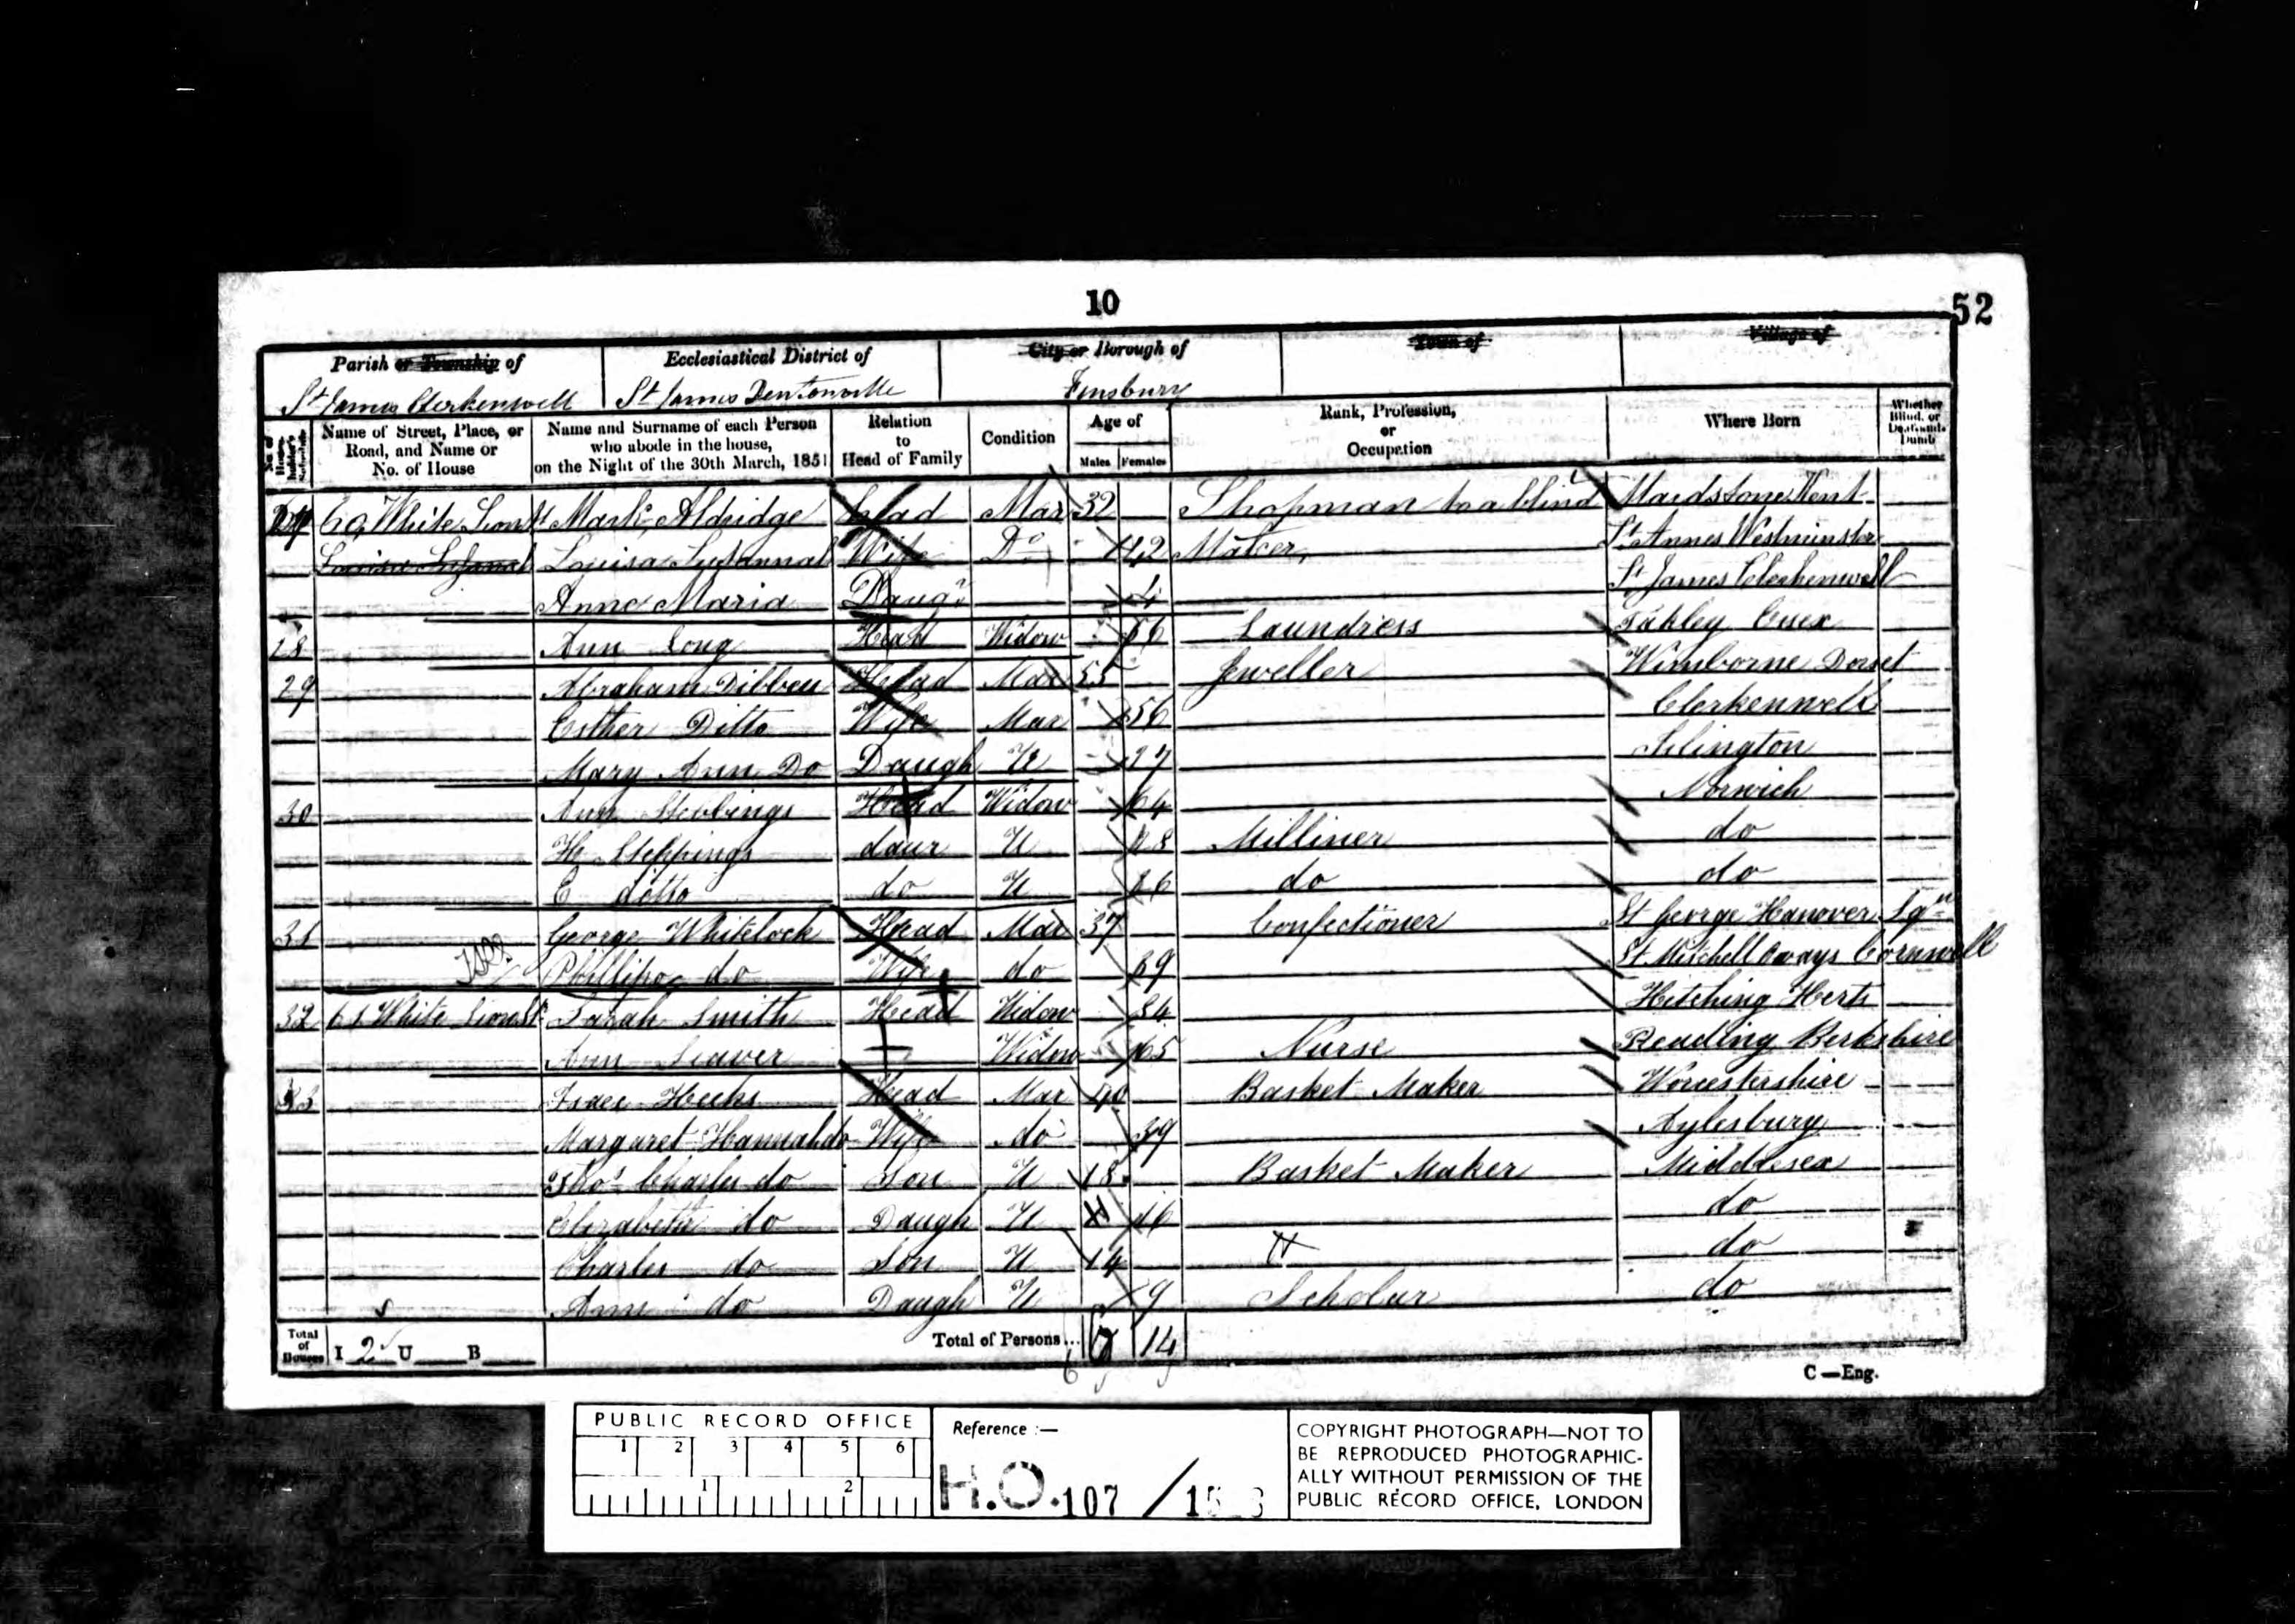 10
52
Parish or Township of
Ecclesiastical District of
City or Borough of
Town of
Village of
St James Clerkenwell
St James Pentonville
Finsbury
Name of Street, Place, or Road, and Name or No. of House
Name and Surname of each Person who abode in the house, on the Night of the 30th March, 1851
Relation to Head of Family
Condition
Age of
Males Females
Rank, Profession, or Occupation
Where Born
Whether Blind, or Deaf-and-Dumb
60 White Lion St Mark Aldridge Head Mar 32 Shopman to a blind Maidstone Kent
Louisa Susannah Wife Do 42 Maker St Annes Westminster
Anne Maria Daugr 4 St James Clerkenwell
28 Ann Long Head Widow 66 Laundress Takley Essex
29 Abraham Dibben Head Mar 55 Jeweller Wimborne Dorset
Esther Ditto Wife Mar 56 Clerkenwell
Mary Ann Do Daugh U 27 Islington
30 Ann Stebbings Head Widow 64 Norwich
H Steppings daur U 28 Milliner do
E ditto do U 26 do do
31 George Whitelock Head Mar 37 Confectioner St George Hanover Sqre
Phillipa do Wife do 39 St Mitchell Cornwell
32 61 White Lion St Sarah Smith Head Widow 84 Hitching Herts
Ann Seaver Widow 65 Nurse Reading Berkshire
33 Head Mar 40 Basket Maker Worcestershire
Margaret Hannah do Wife do 39 Aylesbury
Thos Charles do Son U 18 Basket Maker Middlesex
Elizabeth do Daugh U 16 do
Charles do Son U 14 do
Ann do Daugh U 9 Scholar do
Total of Houses I 2 U B
Total of Persons... 14
C—Eng.
PUBLIC RECORD OFFICE
1 2 3 4 5 6
1 2
Reference :—
H.O. 107 / 15
COPYRIGHT PHOTOGRAPH—NOT TO
BE REPRODUCED PHOTOGRAPHIC-
ALLY WITHOUT PERMISSION OF THE
PUBLIC RECORD OFFICE, LONDON